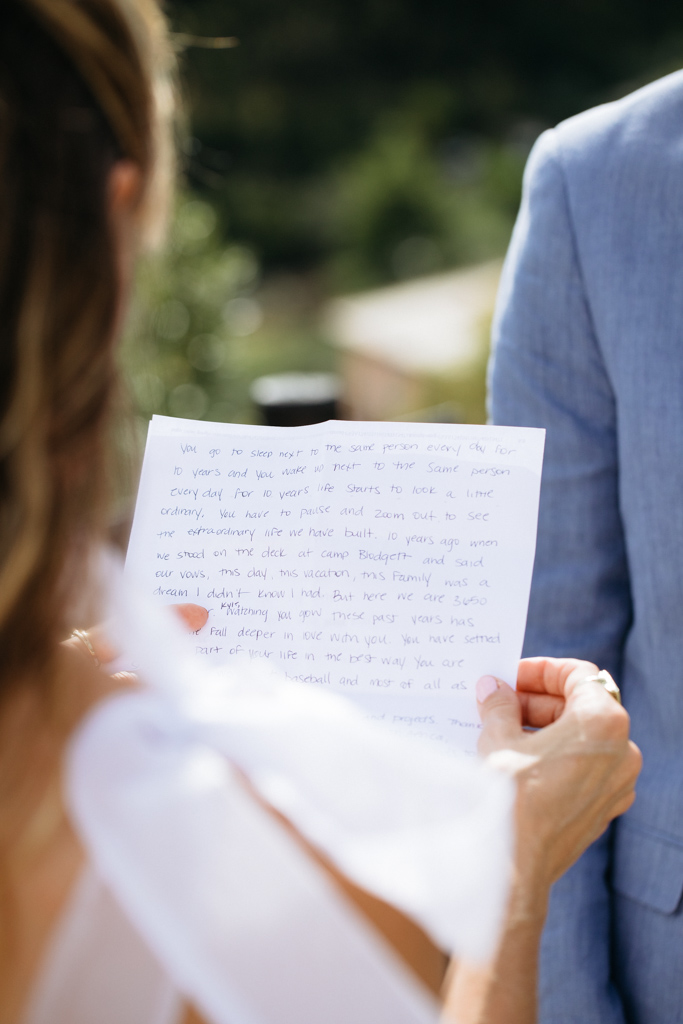 You go to sleep next to the same person every day for
10 years and you wake up next to the same person
every day for 10 years life starts to look a little
ordinary. You have to pause and zoom out to see
the extraordinary life we have built. 10 years ago when
we stood on the deck at camp Blodgett and said
our vows, this day, this vacation, this Family was a
dream I didn't know I had. But here we are 3650
Kyle, Watching you grow these past years has
Fall deeper in love with you. You have settled
part of your life in the best way you are
baseball and most of all as
projects. Thank